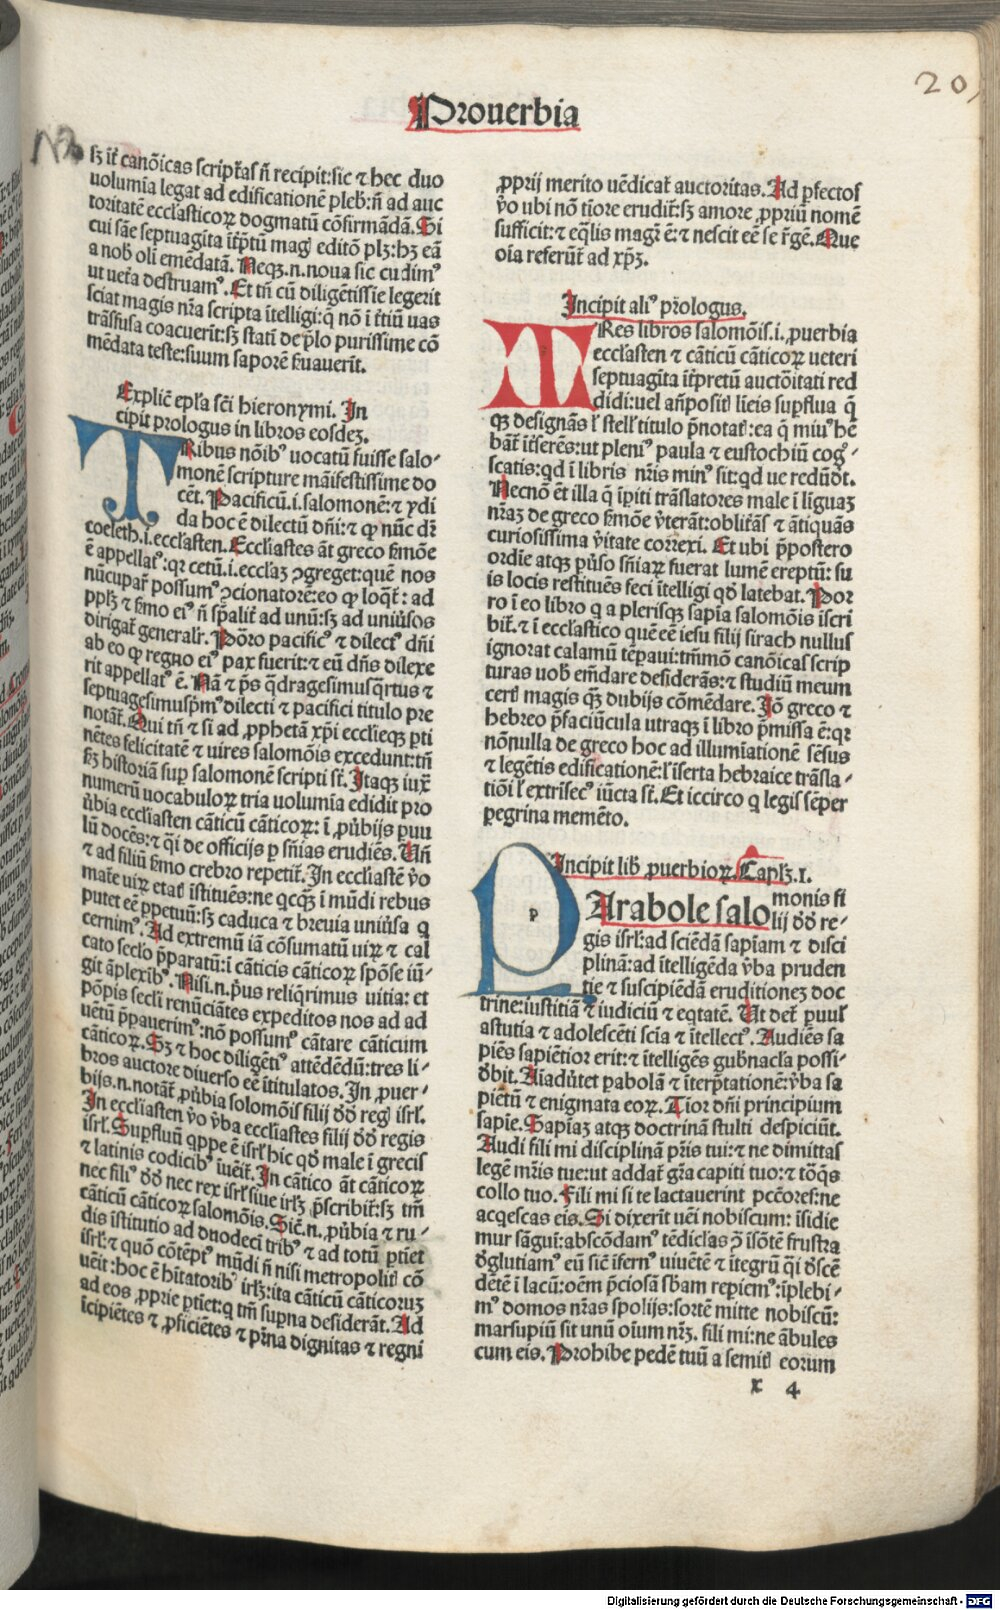 20
Prouerbia
sꝫ it̃ canõicas script̃as ñ recipit:sic ⁊ hec duo
uolumĩa legat ad edificationẽ pleb̃:ñ ad auc
toritatẽ eccl̃asticoꝝ dogmatũ cõfirmãdã.Si
cui sãe septuagĩta it̃ptũ mag̃ editõ plꝫ:hꝫ eã
a nob̃ oli emẽdatã. Neqꝫ.n.noua sic cudimꝰ
ut uet̃a destruamꝰ.Et tñ cũ diligẽtissie legerit
sciat magis nr̃a scripta ĩtelligi:q̃ nõ ĩ t̃tiũ uas
trãsfusa coacuerĩt:sꝫ statĩ de p̃lo purissime cõ
mẽdata teste:suum saporẽ ẜuauerĩt.
Explic̃ epl̃a sc̃i hieronymi. In
cipit prologus in libros eosdeꝫ.
TRibus nõibꝰ uocatũ fuisse salo-
monẽ scripture mãifestissime do
cẽt. Pacificũ.i.salomonẽ:⁊ ydi
da hoc ẽ dilectũ dñi:⁊ ꝙ nũc dr̃
coeleth.i.eccl̃asten.Eccl̃iastes ãt greco ẜmõe
ẽ appellatꝰ:qꝛ cetũ.i.eccl̃aꝫ ꝯgreget:quẽ nos
nũcupar̃ possumꝰ ꝯcionatorẽ:eo ꝙ loq̃t̃: ad
pplꝫ ⁊ ẜmo eiꝰ ñ sp̃alit̃ ad unũ:sꝫ ad uniũsos
dirigat̃ generalr̃. Põro pacificꝰ ⁊ dilectꝰ dñi
ab eo ꝙ regno eiꝰ pax fuerit:⁊ eũ dñs dilexe
rit appellatꝰ ẽ. Nã ⁊ p̃s q̃dragesimusq̃rtus ⁊
septuagesimusp̃mꝰ dilecti ⁊ pacifici titulo pre
notãt̃.Qui tñ ⁊ si ad ꝓphetã xp̃i eccl̃ieqꝫ ꝑti
nẽtes felicitatẽ ⁊ uires salomõis excedunt:tñ
ẜꝫ historiã suꝑ salomonẽ scripti st̃. Itaqꝫ iuxͣ
numerũ uocabuloꝝ tria uolumia edidit pro
ũbia eccl̃iasten cãticũ cãticoꝝ: ĩ ꝓũbijs ꝑuu
lũ docẽs:⁊ q̃i de officijs ꝑ sñias erudiẽs. Uñ
⁊ ad filiũ ẜmo crebro repetit̃. In eccl̃iastẽ ṽo
mat̃e uiꝝ etat̃ ĩstituẽs:ne qcqꝫ ĩ mũdi rebus
putet eẽ ꝑpetuũ:sꝫ caduca ⁊ breuia uniũsa q
cernimꝰ.Ad extremũ iã cõsumatũ uiꝝ ⁊ cal
cato secl̃o p̃paratũ:ĩ cãticis cãticoꝝ spõse iũ-
git ãplexibꝰ.Nisi.n.p̃us reliq̃rimus uitia: et
põpis secl̃i renũciãtes expeditos nos ad ad
uẽtũ p̃pauerimꝰ:nõ possumꝰ cãtare cãticum
cãticoꝝ.Sꝫ ⁊ hoc diligẽtiꝰ attẽdẽdũ:tres li-
bros auctore diuerso eẽ ĩtitulatos. In ꝓuer-
bijs.n.notãt̃ ꝓũbia solomõis filij dd̃ reg̃ isrl̃.
In eccl̃iasten ṽo ṽba eccl̃iastes filij dd̃ regis
isrl̃.Supfluũ qppe ẽ isrl̃ hic qd̃ male ĩ grecis
⁊ latinis codicibꝰ ĩueĩt̃.In cãtico ãt cãticoꝝ
nec filiꝰ dd̃ nec rex isrl̃ siue irlꝫ p̃scribit̃:sꝫ tm̃
cãticũ cãticoꝝ salomõis.Sic̃.n.ꝓũbia ⁊ ru-
dis ĩstitutio ad duodecĩ tribꝰ ⁊ ad totũ ꝑtĩet
isrl̃:⁊ quõ cõtẽptꝰ mũdi ñ nisi metropolit̃ cõ
uẽit:hoc ẽ hĩtatoribꝰ irlꝫ:ita cãticũ cãticoruꝫ
ad eos ꝓprie ꝑtĩet:q tm̃ supna desiderãt.Ad
ĩcipiẽtes ⁊ ꝓficiẽtes ⁊ pr̃na dignitas ⁊ regni
ꝓprij merito uẽdicat̃ auctoritas.Ad ꝑfectos
ṽo ubi nõ tĩore erudit̃:sꝫ amore ꝓpriũ nomẽ
sufficit:⁊ eq̃lis magr̃ ẽ:⁊ nescit eẽ se r̃gẽ.Que
oĩa referũt̃ ad xp̃ꝫ.
Incipit aliꝰ p̃rologus.
TRes libros salomõis.i.ꝓuerbia
eccl̃asten ⁊ cãticũ cãticoꝝ ueteri
septuagĩta it̃pretũ auctõitati red
didi:uel añposit̃ lĩeis supflua q̃
qꝫ designãs l̃ stell̃ titulo p̃notat̃:ea q̃ miuꝰ hẽ
bãt̃ it̃serẽs:ut pleniꝰ paula ⁊ eustochiũ cogꝰ-
scatis:qd ĩ libris nr̃is minꝰ sit:qd ue redũdt̃.
Necnõ ẽt illa q ĩpiti trãslatores male ĩ lĩguaꝫ
nr̃aꝫ de greco ẜmõe ṽterãt:oblit̃ãs ⁊ ãtiquãs
curiosissima ṽitate correxi. Et ubi p̃postero
ordĩe atqꝫ ꝑũso sñiaꝝ fuerat lumẽ ereptũ: su
is locis restituẽs feci ĩtelligi qd̃ latebat.Por
ro ĩ eo libro q a plerisqꝫ sapĩa salomõis ĩscri
bit̃.⁊ ĩ eccl̃astico quẽ eẽ iesu filij sirach nullus
ignorat calamũ tẽpaui:tm̃mõ canõicas scrip
turas uob̃ em̃dare desiderãs:⁊ studiũ meum
cert̃ magis q̃ꝫ dubijs cõmẽdare. Iõ greco ⁊
hebreo p̃faciũcula utraqꝫ ĩ libro p̃missa ẽ:qꝛ
nõnulla de greco hoc ad illumĩationẽ sẽsus
⁊ legẽtis edificationẽ:l̃ ĩserta hebraice trãsla-
tiõi l̃ extrĩsecꝰ iũcta st̃.Et iccirco q legis sẽper
ꝑegrina memẽto.
Incipit lib̃ ꝓuerbioꝝ.Caplꝫ.1.
p
PArabole salomonis fi
lij dd̃ re-
gis isrl̃:ad sciẽdã sapĩam ⁊ disci
plinã:ad ĩtelligẽda ṽba pruden
tie ⁊ suscipiẽdã eruditioneꝫ doc
trine:iustitiã ⁊ iudiciũ ⁊ eqtatẽ. Ut det̃ ꝑuul̃
astutia ⁊ adolescẽti scĩa ⁊ ĩtellectꝰ.Audiẽs sa
piẽs sapiẽtior erit:⁊ ĩtelligẽs gub̃nacl̃a possi-
d̃bit.Aĩaduẽtet pabolã ⁊ ĩterp̃tationẽ:ṽba sa
piẽtũ ⁊ enigmata eoꝝ. Tĩor dñi principium
sapĩe.Sapĩaꝫ atqꝫ doctrinã stulti despiciũt.
Audi fili mi disciplinã pr̃is tui:⁊ ne dimittas
legẽ mr̃is tue:ut addat̃ gr̃a capiti tuo:⁊ tõq̃s
collo tuo. Fili mi si te lactauerint pcc̃ores:ne
acq̃escas eis.Si dixerĩt uẽi nobiscum: ĩsidie
mur sãguĩ:abscõdamꝰ tẽdiclas ꝯ̃ ĩsõtẽ frustra
d̃glutiamꝰ eũ sic̃ ĩfernꝰ uiuẽtẽ ⁊ ĩtegrũ q̃i d̃scẽ
dẽtẽ ĩ lacũ:oẽm p̃ciosã sb̃am repiemꝰ:ĩplebi-
mꝰ domos nr̃as spolijs:sortẽ mitte nobiscũ:
marsupiũ sit unũ oĩum nr̃ꝫ. fili mi:ne ãbules
cum eis. Prohibe pedẽ tuũ a semit̃ eorum
x 4
Digitalisierung gefördert durch die Deutsche Forschungsgemeinschaft - DFG